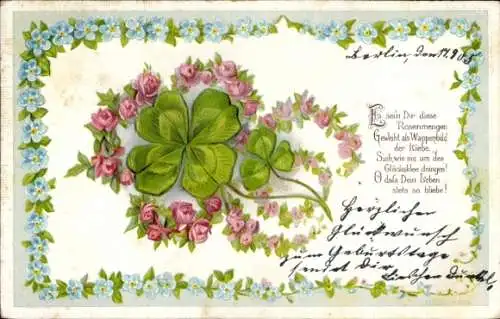 Berlin den 17.9.05
Es sei'n Dir diese
Rosenmengen
Geweiht als Wappenbild
der Liebe.
Sieh, wie sie um das
Glücksklee drängen!
O daß Dein Leben
stets so bliebe!
Herzlichen
Glückwunsch
zum Geburtstage
sendet Dir
Lieschen